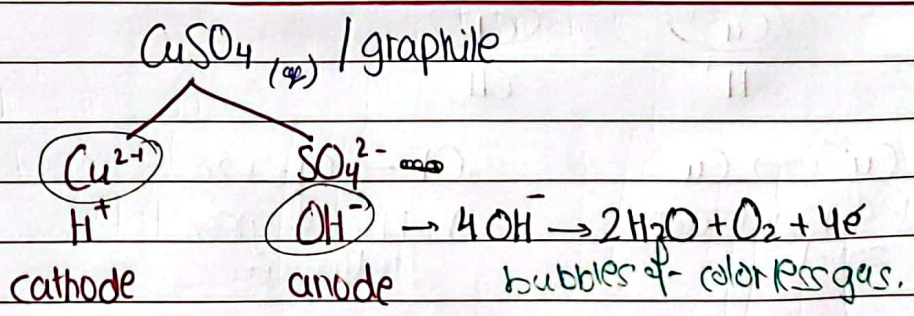 CuSO4 (aq) / graphile
Cu²⁺ SO4²⁻
H⁺ OH⁻ → 4OH⁻ → 2H2O + O2 + 4e⁻
cathode anode bubbles of colorless gas.